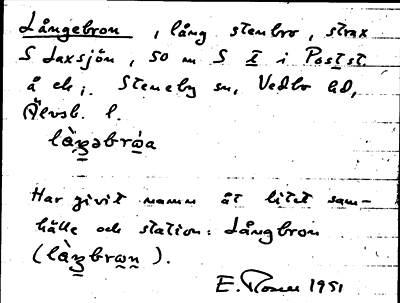 Långebron, lång stenbro, strax
S Laxsjön, 50 m S I i Postst.
å ek; Steneby sn, Vedbo hd,
Älvsb. l.
Har givit namn åt litet sam-
hälle och station: Långbron
E. Rosell 1951